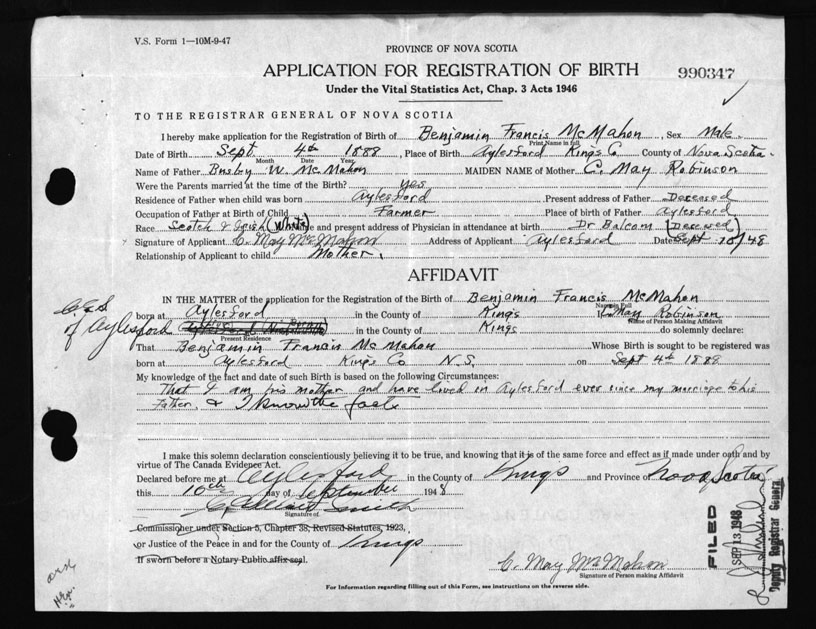 V.S. Form 1—10M-9-47
PROVINCE OF NOVA SCOTIA
APPLICATION FOR REGISTRATION OF BIRTH
990347
Under the Vital Statistics Act, Chap. 3 Acts 1946
TO THE REGISTRAR GENERAL OF NOVA SCOTIA
I hereby make application for the Registration of Birth of Benjamin Francis McMahon, Sex Male.
Print Name in full
Date of Birth Sept 4th 1888, Place of Birth Aylesford Kings Co County of Nova Scotia.
Month Date Year
Name of Father W. McMahon MAIDEN NAME of Mother C. May Robinson
Were the Parents married at the time of the Birth? yes
Residence of Father when child was born Aylesford Present address of Father Deceased
Occupation of Father at Birth of Child Farmer Place of birth of Father Aylesford
Race Scotch & Irish (White) and present address of Physician in attendance at birth Dr Balcom (Deceased)
Signature of Applicant C. May McMahon Address of Applicant Aylesford Date Sept 10/48
Relationship of Applicant to child Mother.
AFFIDAVIT
IN THE MATTER of the application for the Registration of the Birth of Benjamin Francis McMahon
Name in Full
born at Aylesford in the County of Kings I, C. May Robinson
Name of Person Making Affidavit
of Aylesford in the County of Kings do solemnly declare:
Present Residence
That Benjamin Francis McMahon Whose Birth is sought to be registered was
born at Aylesford Kings Co N.S. on Sept 4th 1888
My knowledge of the fact and date of such Birth is based on the following Circumstances:
That I am his mother and have lived in Aylesford ever since my marriage to his
Father, & I know the facts
I make this solemn declaration conscientiously believing it to be true, and knowing that it is of the same force and effect as if made under oath and by
virtue of The Canada Evidence Act.
Declared before me at Aylesford in the County of Kings and Province of Nova Scotia
this 10th day of September 1948
Smith
Signature of
Commissioner under Section 5, Chapter 38, Revised Statutes, 1923,
or Justice of the Peace in and for the County of Kings
If sworn before a Notary Public affix seal.
C. May McMahon
Signature of Person making Affidavit
For Information regarding filling out of this Form, see instructions on the reverse side.
FILED
SEP 13 1948
Deputy Registrar General